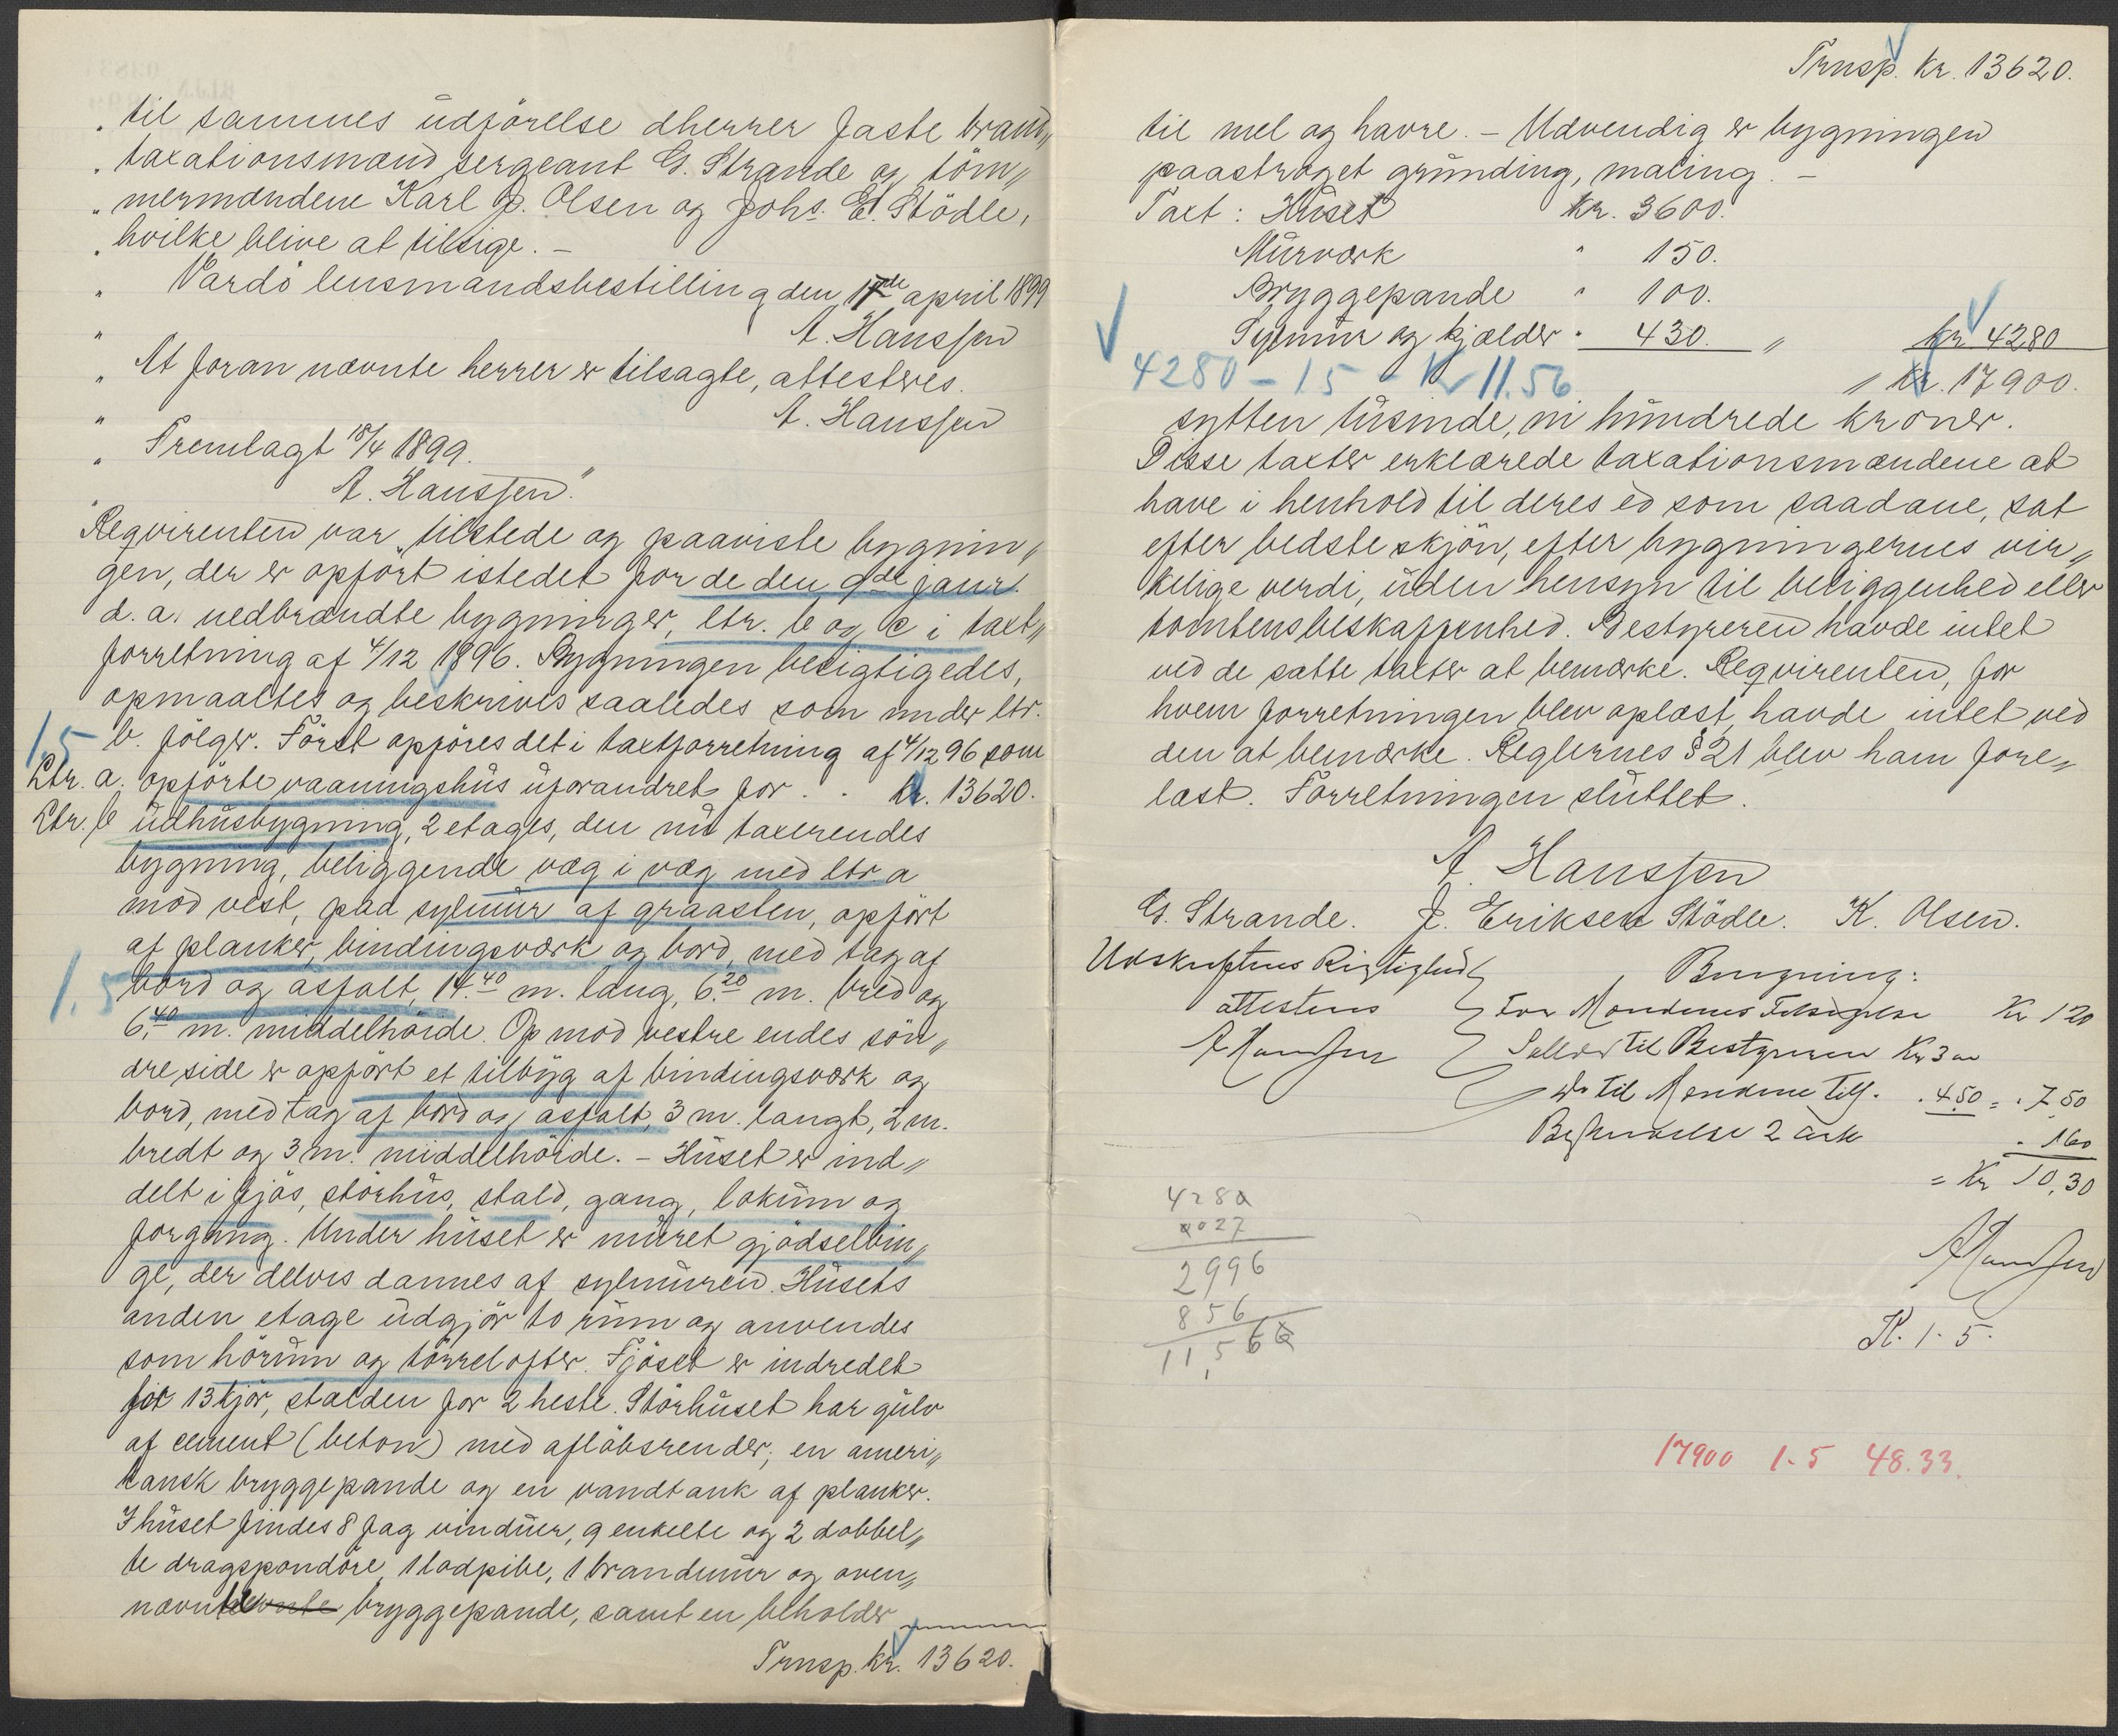 " til sammes udförelse dherrer faste brand„
" taxationsmænd sergeant G. Strande og töm„
" mermændene Karl J. Olsen og Johs. E. Stödle,
" hvilke blive at tilsige. –
" Vardö lensmandsbestilling den 17de april 1899
" A. Hanssen
" At foran nævnte herrer er tilsagte, attesteres.
" A. Hanssen
" Fremlagt 18/4 1899.
" A. Hanssen."
Reqvirenten var tilstede og paaviste bygnin„
gen, der er opfört istedet for de den 9de janr.
d. a. nedbrændte bygninger, ltr. b og c i taxt„
forretning af 4/12 1896. Bygningen besigtigedes,
opmaaltes og beskrives saaledes som under ltr.
b. fölger. Först opföres det i taxtforretning af 4/12 96 som
1,5
Ltr. a. opförte vaaningshus uforandret for . . kr. 13620.
Ltr. b udhusbygning, 2 etages, den nu taxerendes
bygning, beliggende væg i væg med ltr a
mod vest, paa sylmur af graasten, opfört
af planker, bindingsværk og bord, med tag af
1.5
bord og asfalt, 14.40 m. lang, 6.20 m. bred og
6.40 m. middelhöide. Op mod vestre endes sön„
dre side er opfört et tilbyg af bindingsværk og
bord, med tag af bord og asfalt, 3 m. langt, 2 m.
bredt og 3 m. middelhöide. – Huset er ind„
delt i fjös, störhus, stald, gang, lokum og
forgang. Under huset er muret gjödselbin„
ge, der delvis dannes af sylmuren. Husets
anden etage udgjör to rum og anvendes
som hörum og törrelofter. Fjöset er indredet
for 13 kjör, stalden for 2 heste. Störhuset har gulv
af cement (beton) med aflöbsrender; en ameri„
kansk bryggepande og en vandtank af planker.
I huset findes 8 fag vinduer, 9 enkelte og 2 dobbel„
te dragspondöre, 1 lodpibe, 1 brandmur og oven„
nævnte bryggepande, samt en beholder
Trnsp. kr. 13620.
Trnsp. kr. 13620.
til mel og havre. – Udvendig er bygningen
paastrøget grunding, maling. –
Taxt: Huset kr. 3600.
Murværk " 150.
Bryggepande " 100.
Sylmur og kjælder " 430. „ kr 4280
4280 – 1.5 – Kr 11.56 „ kr. 17900.
sytten tusinde, ni hundrede kroner.
Disse taxter erklærede taxationsmændene at
have i henhold til deres ed som saadane, sat
efter bedste skjön, efter bygningernes vir„
kelige verdi, uden hensyn til beliggenhed eller
tomtens beskaffenhed. Bestyreren havde intet
ved de satte taxter at bemærke. Reqvirenten, for
hvem forretningen blev oplæst, havde intet ved
den at bemærke. Reglernes § 21 blev ham fore„
læst. Forretningen sluttet.
A. Hanssen
G. Strande. J. Eriksen Stödle. K. Olsen.
Udskriftens Rigtighed
attesteres
A Hanssen
Beregning:
For Mændenes Tilsigelse Kr 1 20
Sallær til Bestyreren Kr 3 00
Do til Mændene Tils. " 4.50 = " 7,50
Beskrivelse 2 ark " 1 60
= Kr 10,30
A Hanssen
4280
0027
2996
856
11,560
K. 1. 5.
17900 1.5 48.33.